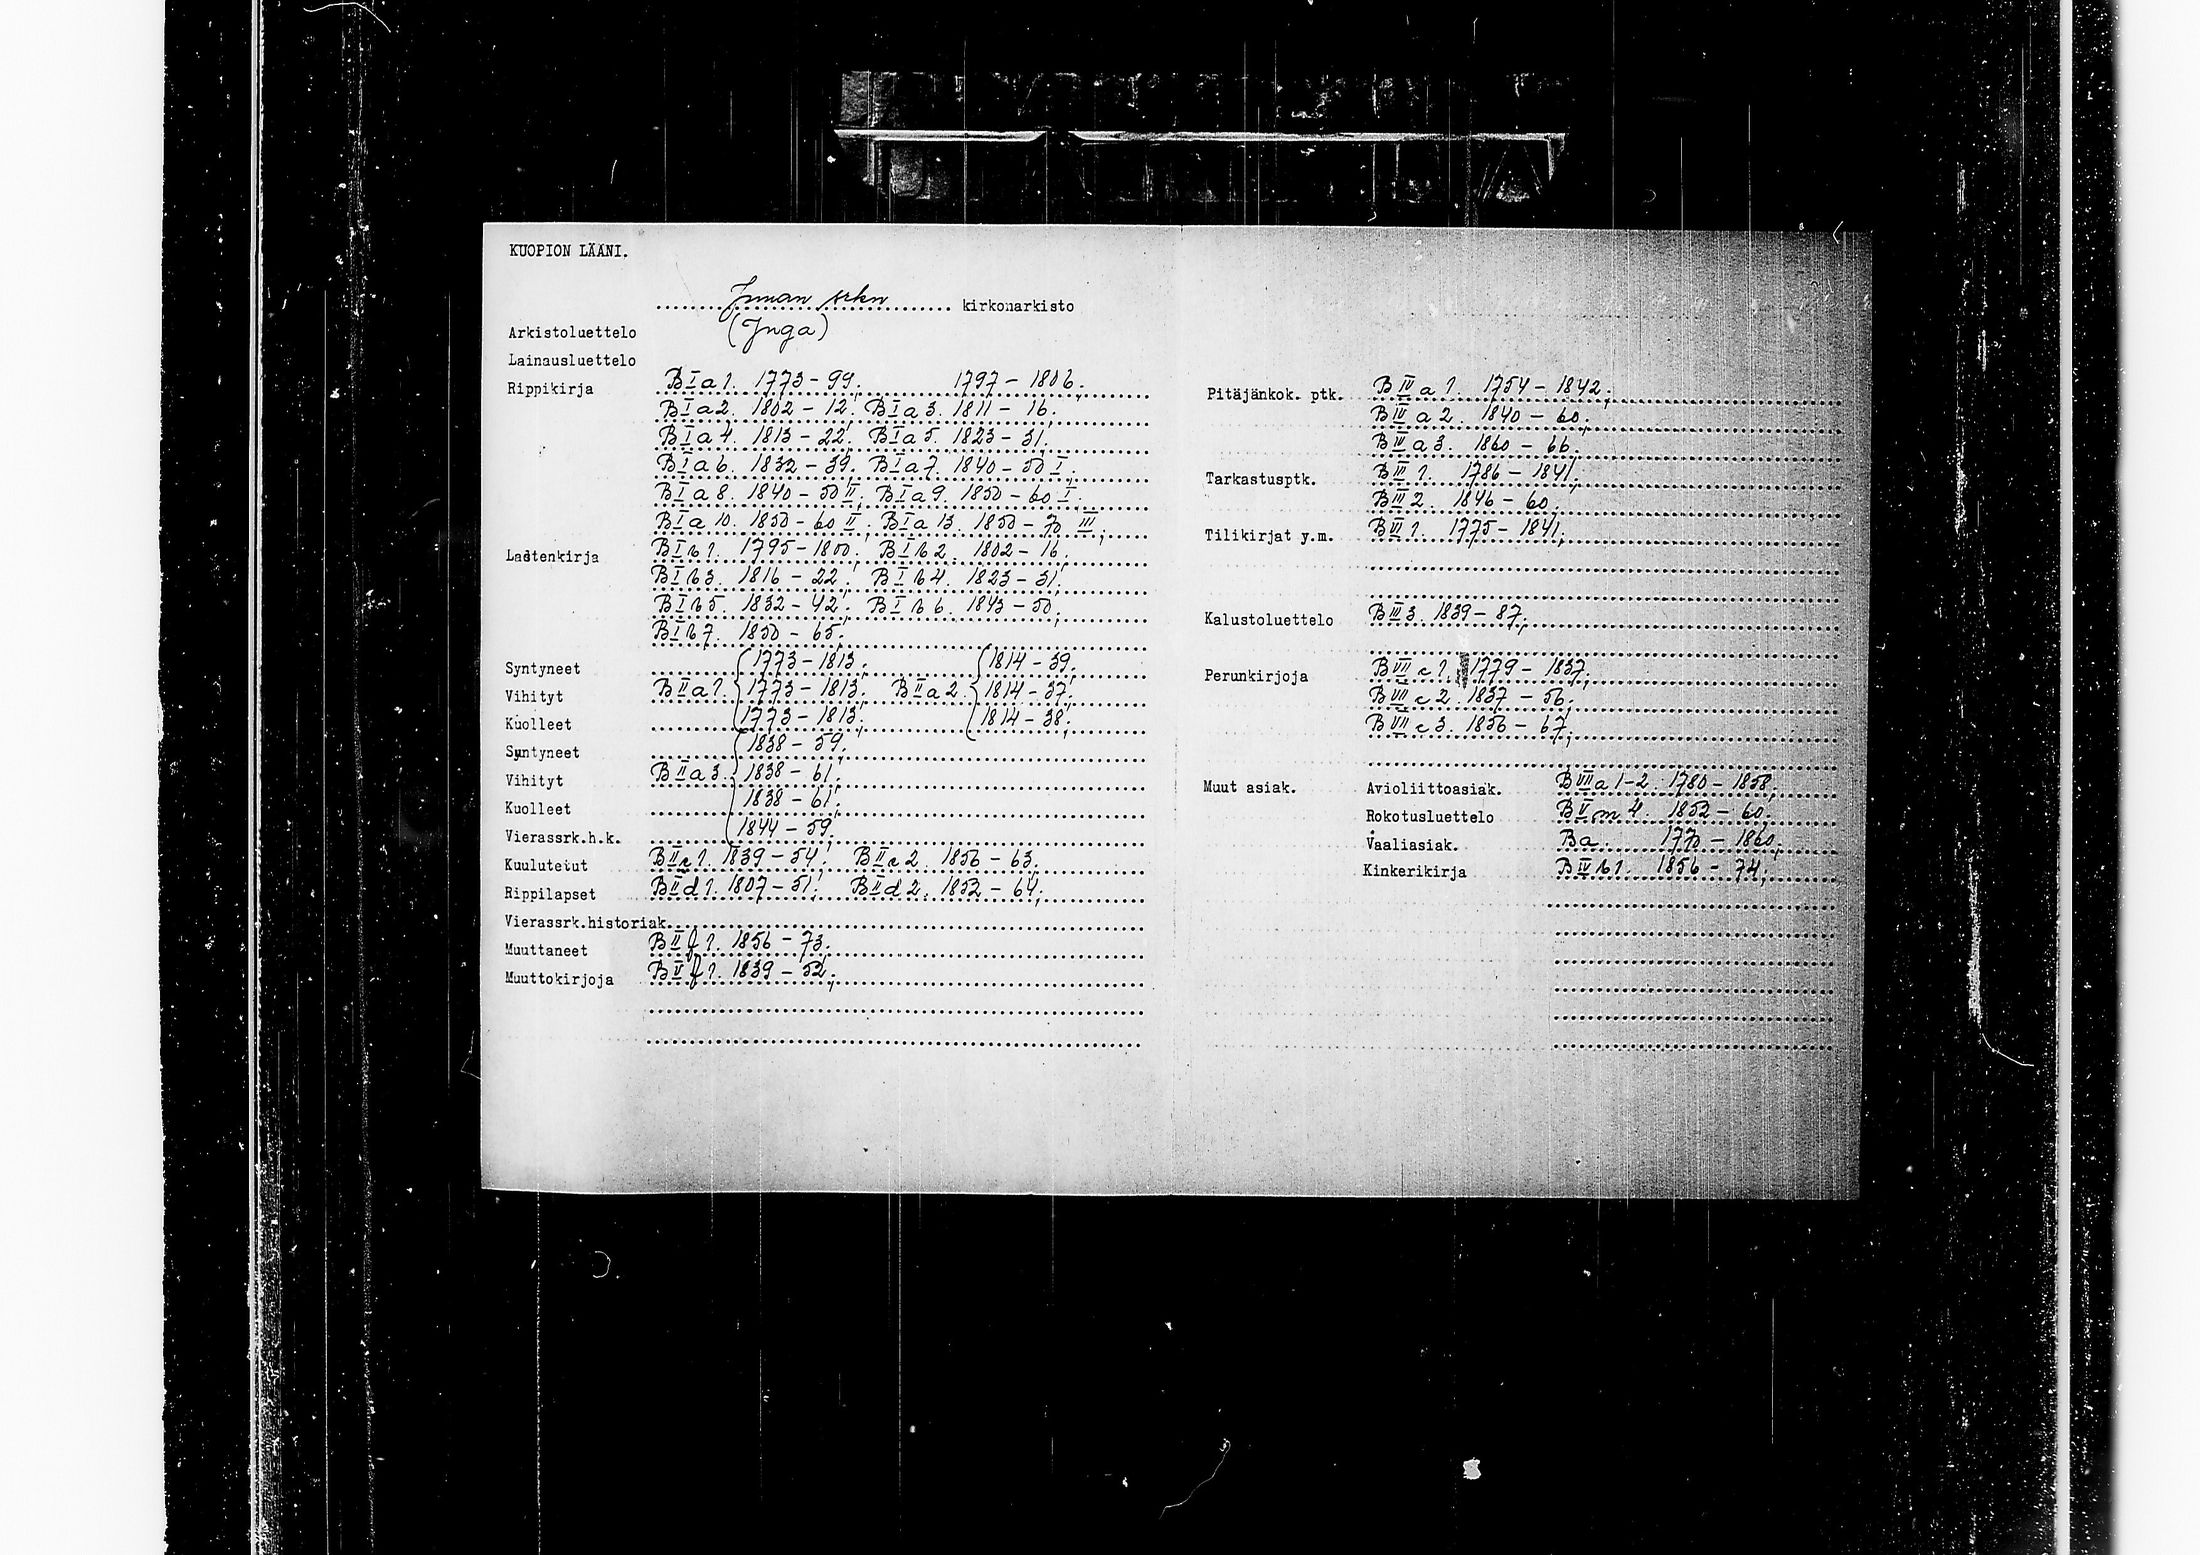 KUOPION LÄÄNI.
Juuan srkn kirkonarkisto
Arkistoluettelo (Juga)
Lainausluettelo
Rippikirja B I a 1. 1773-99. 1797-1806.
B I a 2. 1802-12. B I a 3. 1811-16.
B I a 4. 1813-22. B I a 5. 1823-31.
B I a 6. 1832-39. B I a 7. 1840-50 I.
B I a 8. 1840-50 II. B I a 9. 1850-60 I.
B I a 10. 1850-60 II. B I a 13. 1850-70 III.
Lastenkirja B I b 1. 1795-1800. B I b 2. 1802-16.
B I b 3. 1816-22. B I b 4. 1823-31.
B I b 5. 1832-42. B I b 6. 1843-50.
B I b 7. 1850-65.
Syntyneet 1773-1813. 1814-39.
Vihityt B II a 1. 1773-1813. B II a 2. 1814-37.
Kuolleet 1773-1813. 1814-38.
Syntyneet 1838-59.
Vihityt B II a 3. 1838-61.
Kuolleet 1838-61.
Vierassrk.h.k. 1844-59.
Kuulutetut B II c 1. 1839-54. B II c 2. 1856-63.
Rippilapset B II d 1. 1807-51. B II d 2. 1852-64.
Vierassrk.historiak.
Muuttaneet B II f 1. 1856-73.
Muuttokirjoja B V f 1. 1839-52.
Pitäjänkok. ptk. B IV a 1. 1754-1842.
B IV a 2. 1840-60.
B IV a 3. 1860-66.
Tarkastusptk. B III 1. 1786-1841.
B III 2. 1846-60.
Tilikirjat y.m. B VI 1. 1775-1841.
Kalustoluettelo B III 3. 1839-87.
Perunkirjoja B VII c 1. 1779-1837.
B VII c 2. 1837-56.
B VII c 3. 1856-67.
Muut asiak. Avioliittoasiak. B VII a 1-2. 1780-1858.
Rokotusluettelo B V m 4. 1852-60.
Vaaliasiak. Ba. 1770-1860.
Kinkerikirja B IV b 1. 1856-74.